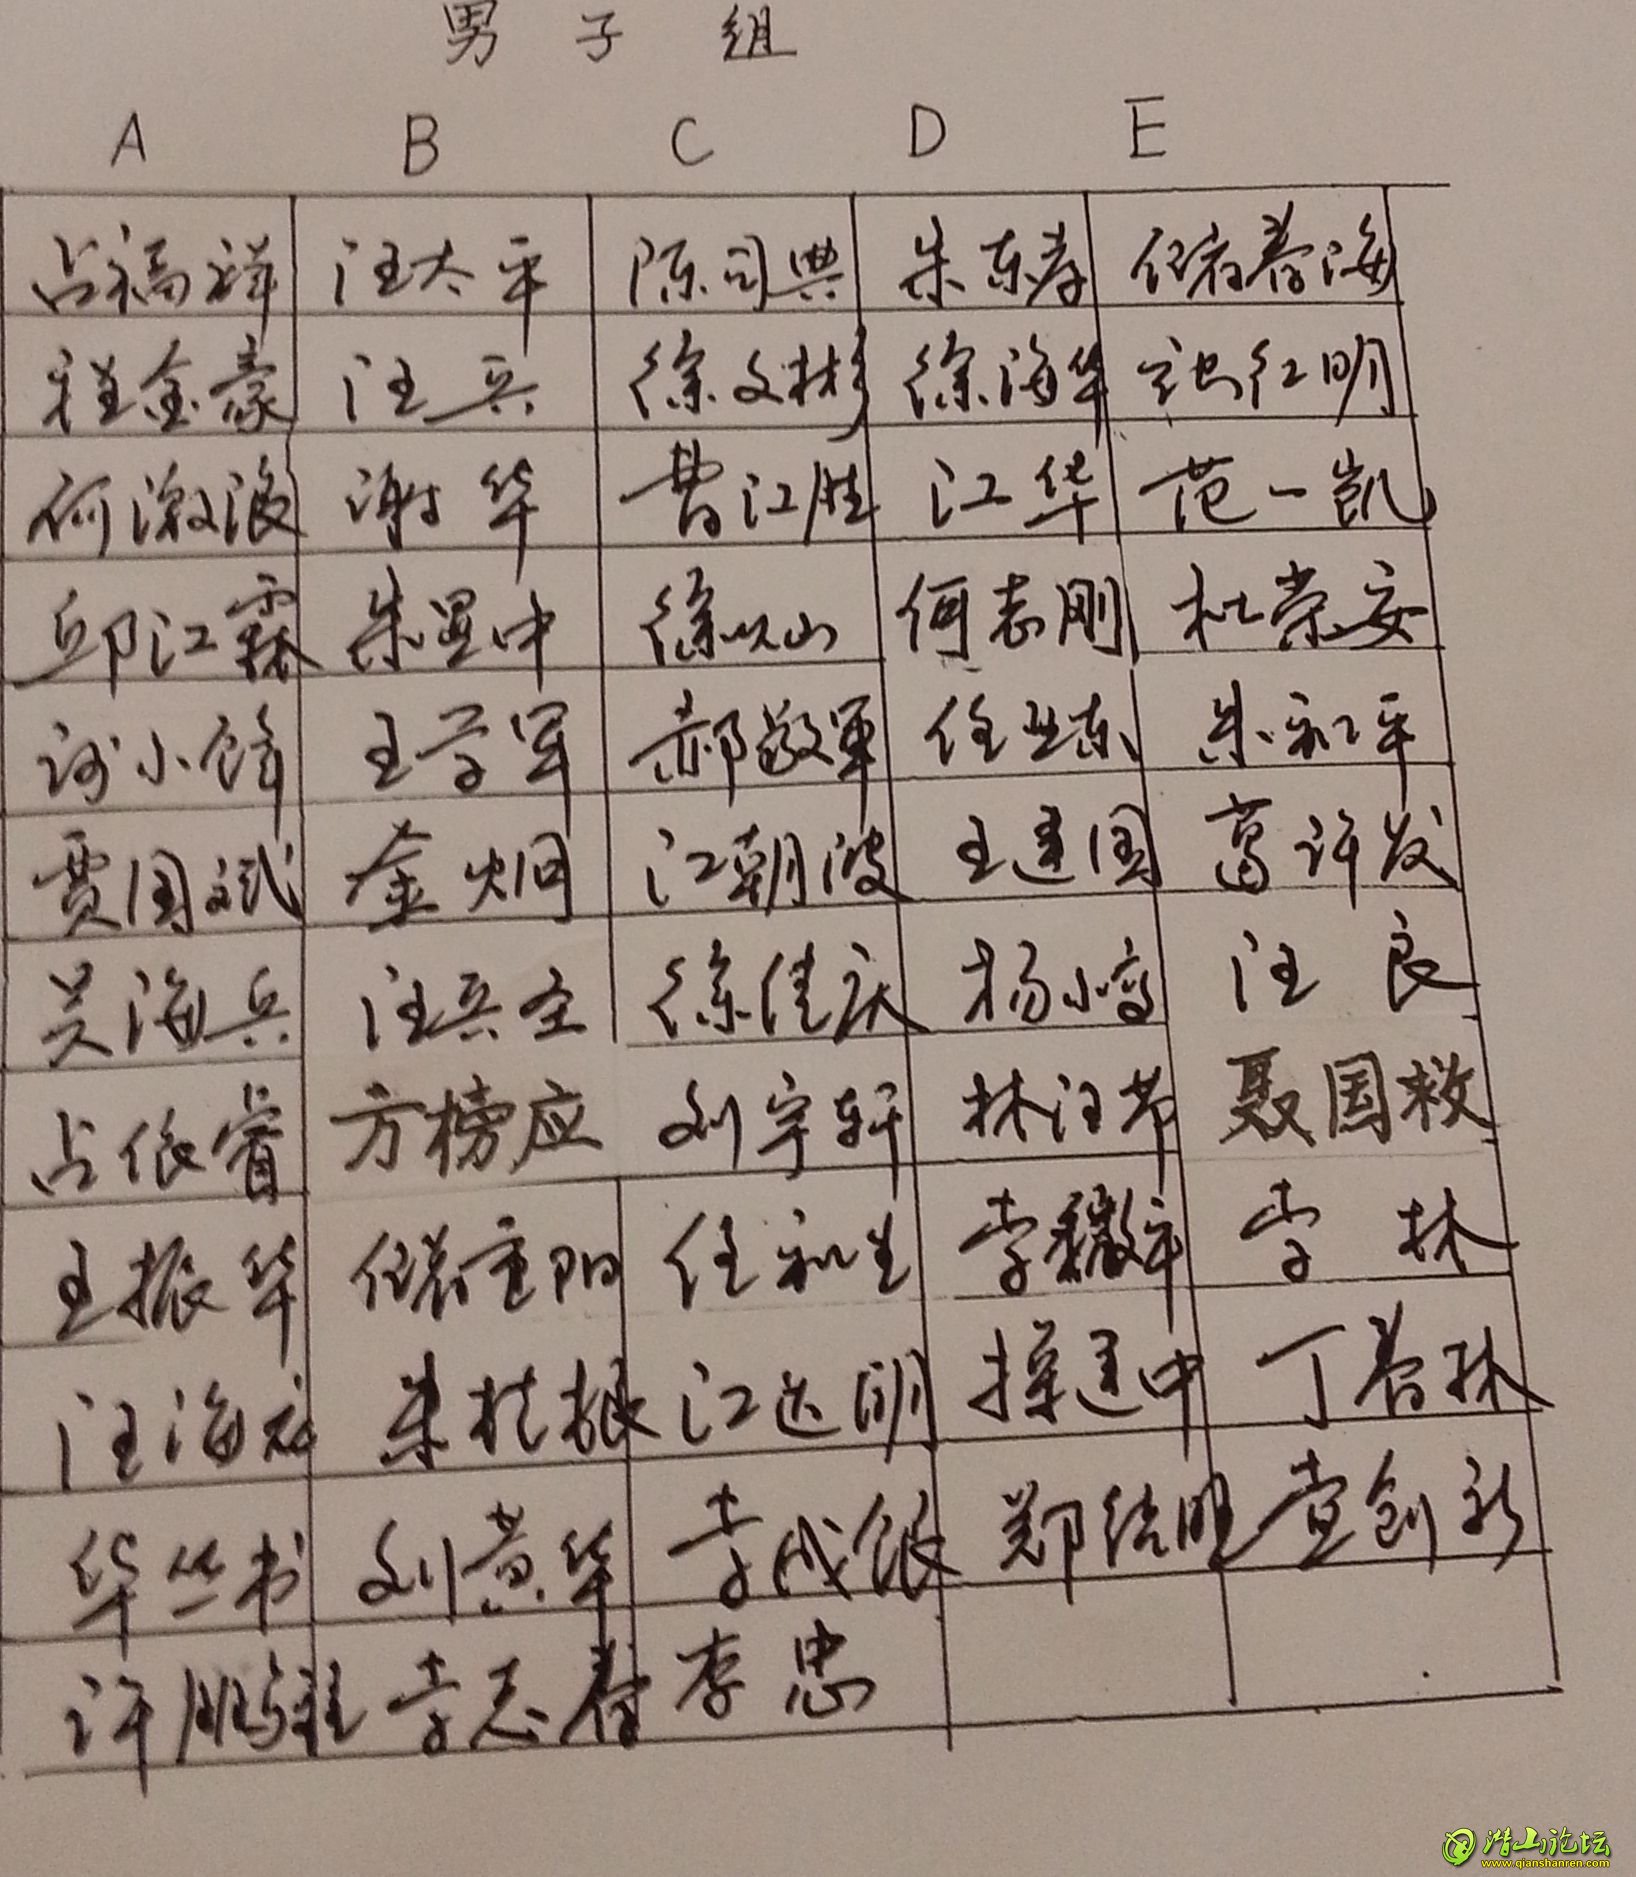 男子组
A B C D E
占福祥 汪太平 陈司典 朱东寿 储春海
程金豪 汪兵 徐文彬 徐海华 红明
何激浪 谢华 曹江胜 江华 范一凯
邱江霖 朱显中 徐以山 何志刚 杜荣安
小锋 王学军 郝敬军 任亚东 朱和平
贾国斌 金炯 江朝波 王建国 葛许发
吴海兵 汪兵全 徐佳庆 杨小弯 汪良
占依睿 方榜应 刘宇轩 林汪节 聂国救
王振华 储重阳 任和生 李平 李林
汪海龙 朱桂根 江达明 操建中 丁春林
华丛书 刘黄华 李成银 郑结旺 童创新
许鹏程 李志春 李忠
潜山论坛
www.qianshanren.com